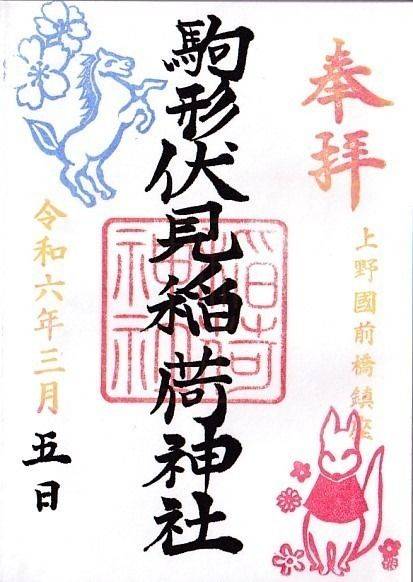 奉拝
上野國前橋鎮座
駒形伏見稲荷神社
稲荷神社
令和六年三月
五日